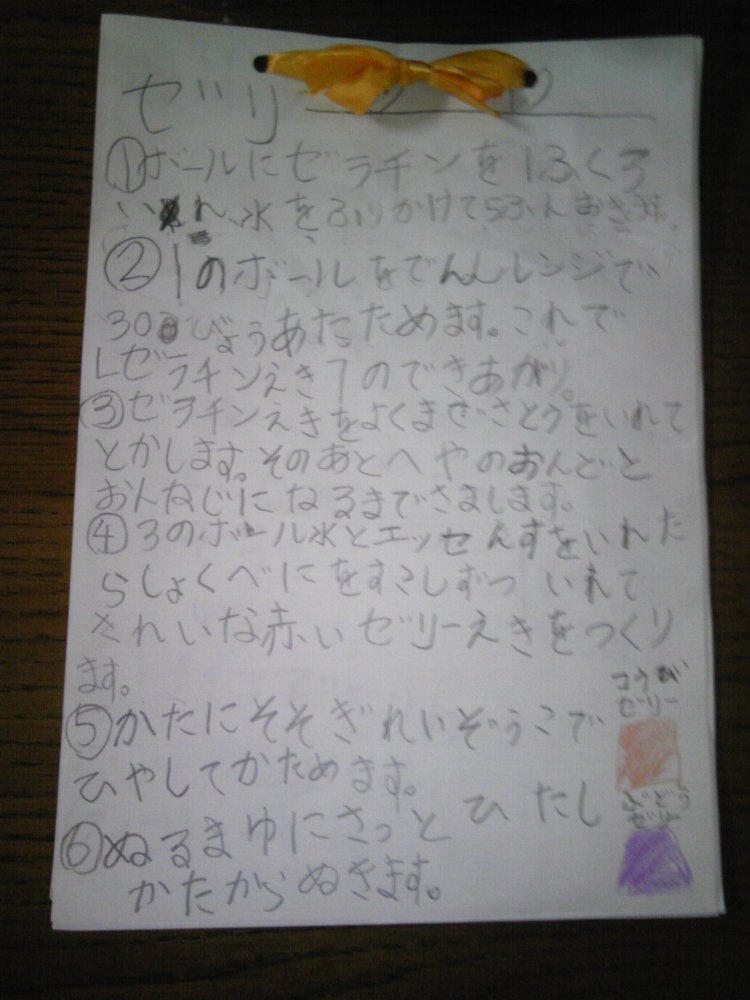 ゼリー
①ボールにゼラチンを1ふくろ
いれ、水をふりかけて5ふんおきます。
②1のボールをでんしレンジで
30びょうあたためます。これで
「ゼラチンえき」のできあがり。
③ゼラチンえきをよくまぜさとうをいれて
とかします。そのあとへやのおんどと
おんなじになるまでさまします。
④3のボール水とエッセんすをいれた
らしょくべにをすこしずついれて
きれいな赤いゼリーえきをつくり
ます。
⑤かたにそそぎれいぞうこで
ひやしてかためます。
⑥ぬるまゆにさっとひたし
かたからぬきます。
ゼリー
ぶどう
ゼリー